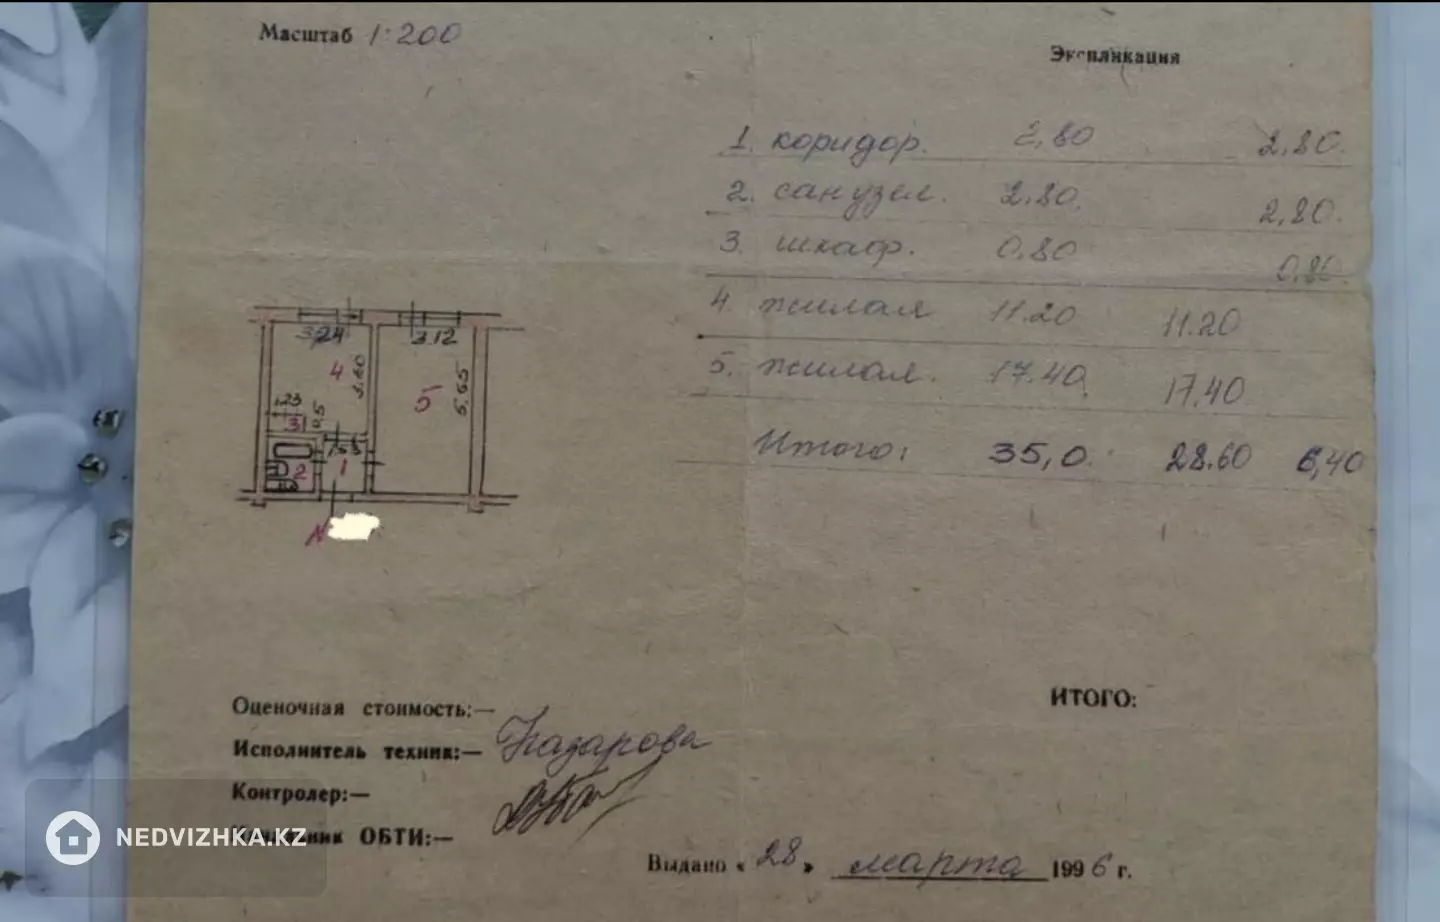 Масштаб 1:200
Экспликация
1. коридор. 2,80 2,80.
2. санузел. 2.80. 2,80.
3. шкаф. 0,80 0,80.
4. жилая 11.20 11.20
5. жилая. 17.40. 17.40
Итого: 35,0. 28.60 6,40
3,24 3.12
4 3.60
5 5.65
1.23
3
2 1
N
ИТОГО:
Оценочная стоимость:—
Исполнитель техник:— Назарова
Контролер:—
ОБТИ:—
NEDVIZHKA.KZ
Выдано « 28 » марта 1996 г.